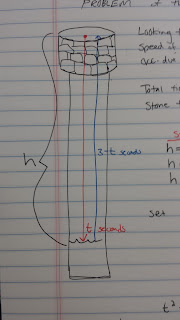 PROBLEM of th
Looking f
Speed of
acc. due
Total ti
Stone t
h =
h
h
h
3-t seconds
t seconds
set
t²